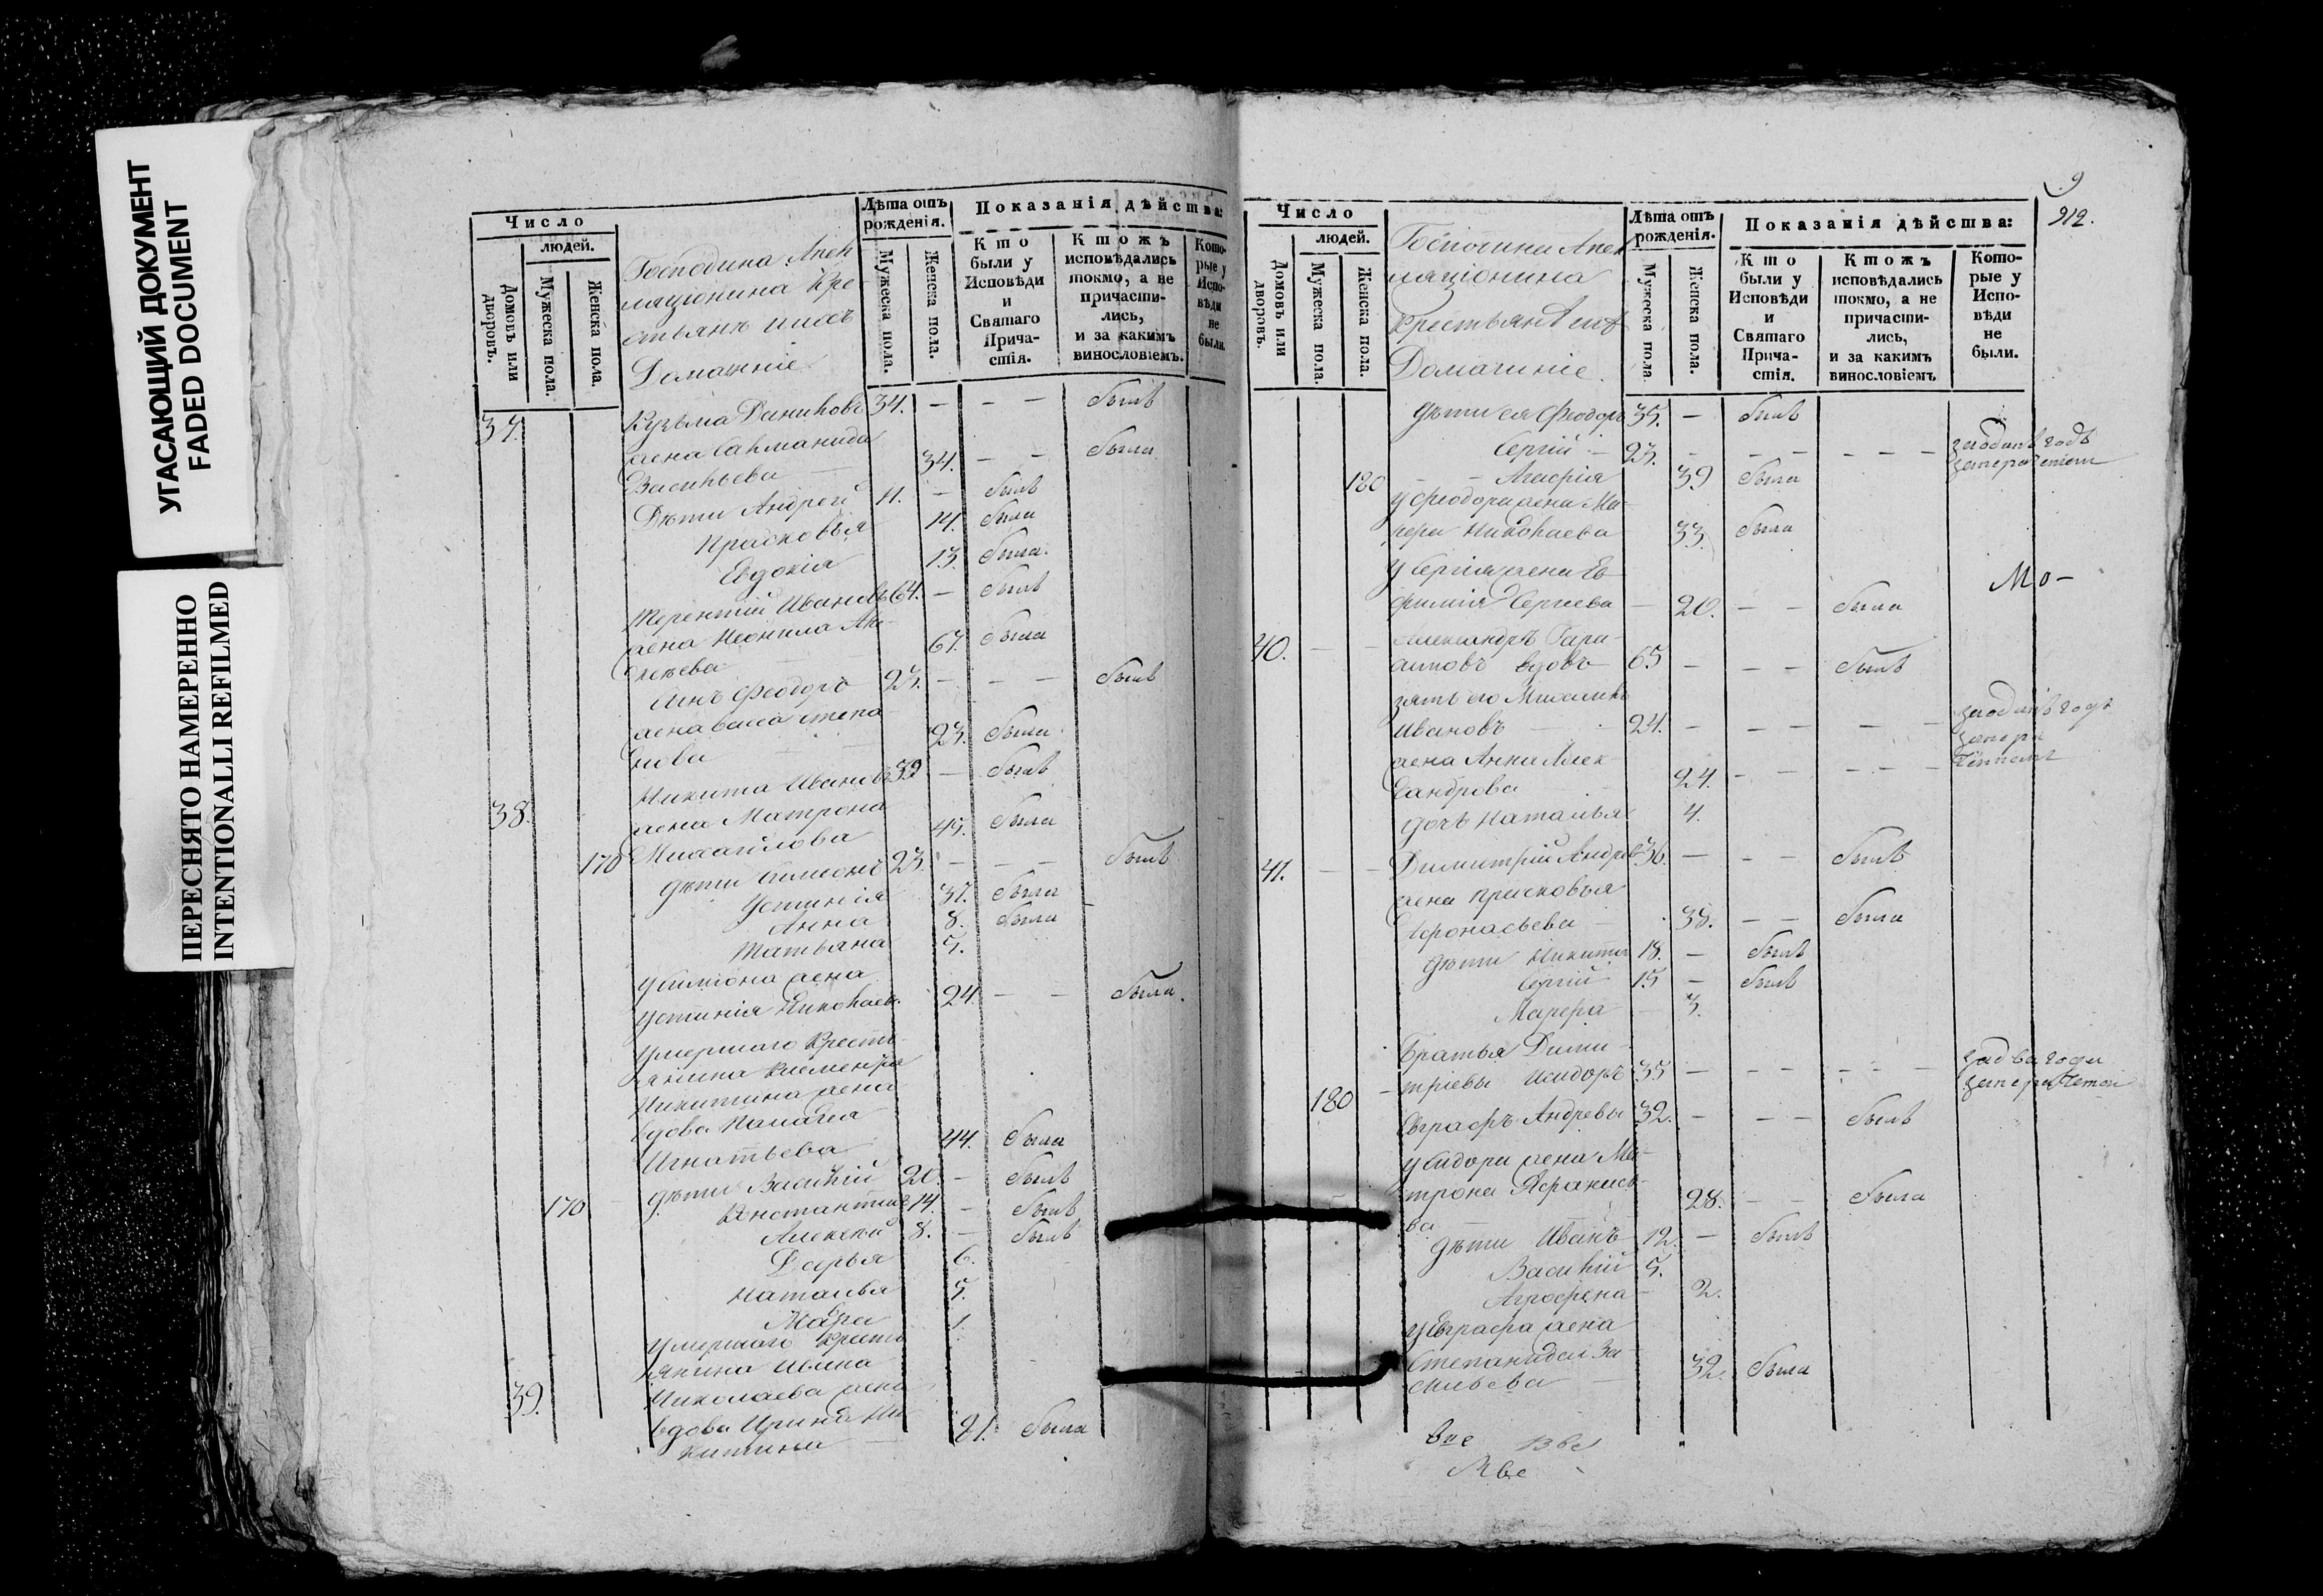 УГАСАЮЩИЙ ДОКУМЕНТ
FADED DOCUMENT
ПЕРЕСНЯТО НАМЕРЕННО
INTENTIONALLI REFILMED
Число
людей.
Домовъ или дворовъ.
Мужеска пола.
Женска пола.
Господина Апех
тяціонина Кре
стьянъ ихъ
Домашніе
Лѣта отъ рожденія.
Мужеска пола.
Женска пола.
Показанія дѣйства:
Кто были у Исповѣди и Святаго Причастія.
Ктожъ исповѣдались токмо, а не причастились, и за какимъ винословіемъ.
Которые у Исповѣди не были.
37. Кузьма Даниловъ 34. — — — былъ
жена
Васильева 34. — — была
Дѣти Андрей 11. — былъ
Прасковья 14. была
Евдокія 13. была
Терентій Ивановъ 64. — былъ
жена Неонила Але-
ксѣева 67. была
Сынъ Феодоръ 23. — — — былъ
жена Степа
нова 23. была
38. Никита Ивановъ 39 — былъ
жена Матрона
170 Михайлова 45. была
дѣти Симеонъ 23. — — — былъ
Устинія 37. была
Анна 8. была
Татьяна 5.
у Симіона жена
Устинія Николаева 24. — — была.
умершаго Кресть-
янина
Никитина жена
вдова Палагея
Игнатьева 44. была
дѣти Василій 20. — былъ
170 Константинъ 14. — былъ
Алексѣй 8. — былъ
Дарья 6.
Наталья 5.
1.
умершаго Кресть
янина Ивана
39. Николаева жена
вдова Ирина Ни-
китина 81. была
9
212.
Число
людей.
Домовъ или дворовъ.
Мужеска пола.
Женска пола.
Господина Апех
тяціонина
Крестьянъ ихъ
Домашніе.
Лѣта отъ рожденія.
Мужеска пола
Женска пола.
Показанія дѣйства:
Кто были у Исповѣди и Святаго Причастія.
Ктожъ исповѣдались токмо, а не причастились, и за какимъ винословіемъ
Которые у Исповѣди не были.
дѣти ея Феодоръ 35. — былъ
Сергій — 23. — — — — — — за одинъ годъ
180 39 была
у Феодора жена Ма-
Николаева 33. была
у Сергія жена Ев-
фимія Сергиева — 20. — — была
40. — — Александръ Гара-
симовъ вдовъ 65 — — — былъ
зять его Михаилъ
Ивановъ 24. — — — — за одинъ годъ
жена Анна Алек-
сандрова 24. — — — — —
дочь Наталья 4.
41. — — Димитрій Андреевъ 36. — — — былъ
жена Прасковья
Афонасьева — 38. — — была
дѣти Никита 18. — былъ
Сергій 15 — былъ
Марѳа — 3.
Братья Дими-
180 тріевы Исидоръ 35 — — — — — — за два года
Евграфъ Андревы 32. — — — былъ
у Сидора жена Ма-
трона Афанасье-
ва 28. — — была
дѣти Иванъ 12. — былъ
Василій 5.
Агрофена — 2.
у Евграфа жена
Степанида Ва-
сильева — 32. была